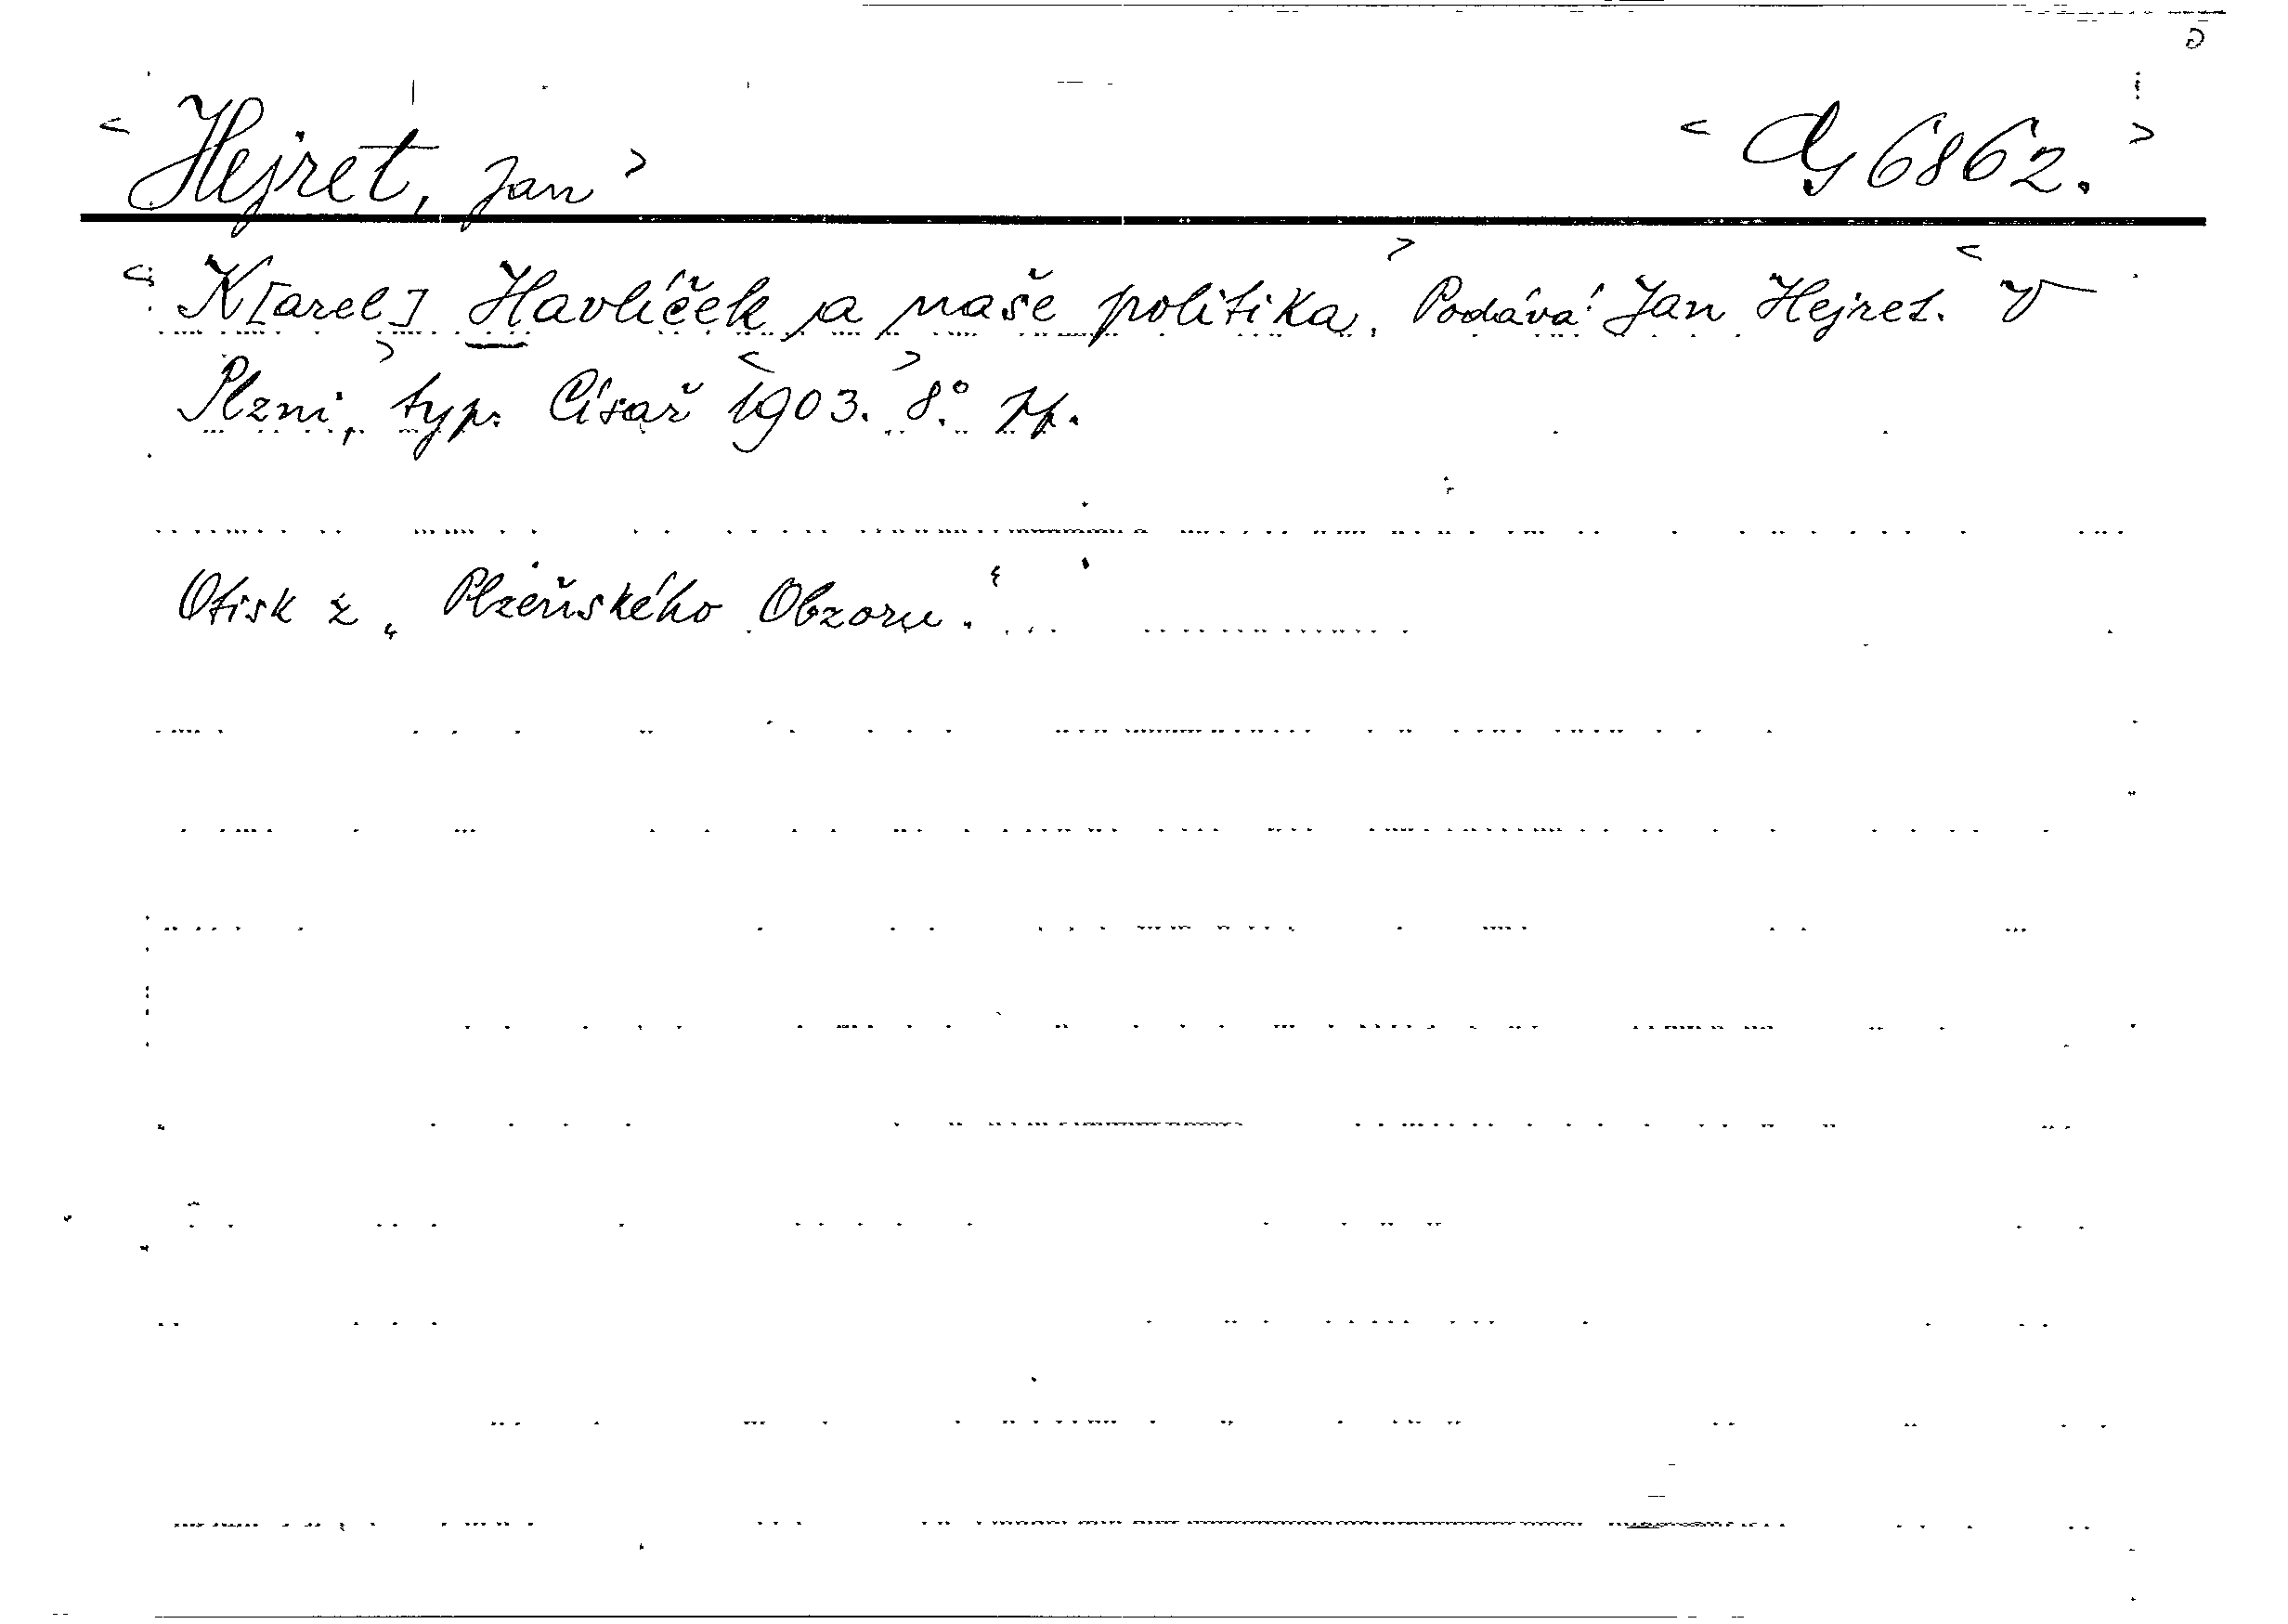 < Hejret, Jan > < Cg 6862. >
< K[arel] Havlíček a naše politika. > Podává Jan Hejret. < V
Plzni, > typ. Císař < 1903. > 8°.
Otisk z „Plzeňského Obzoru.“